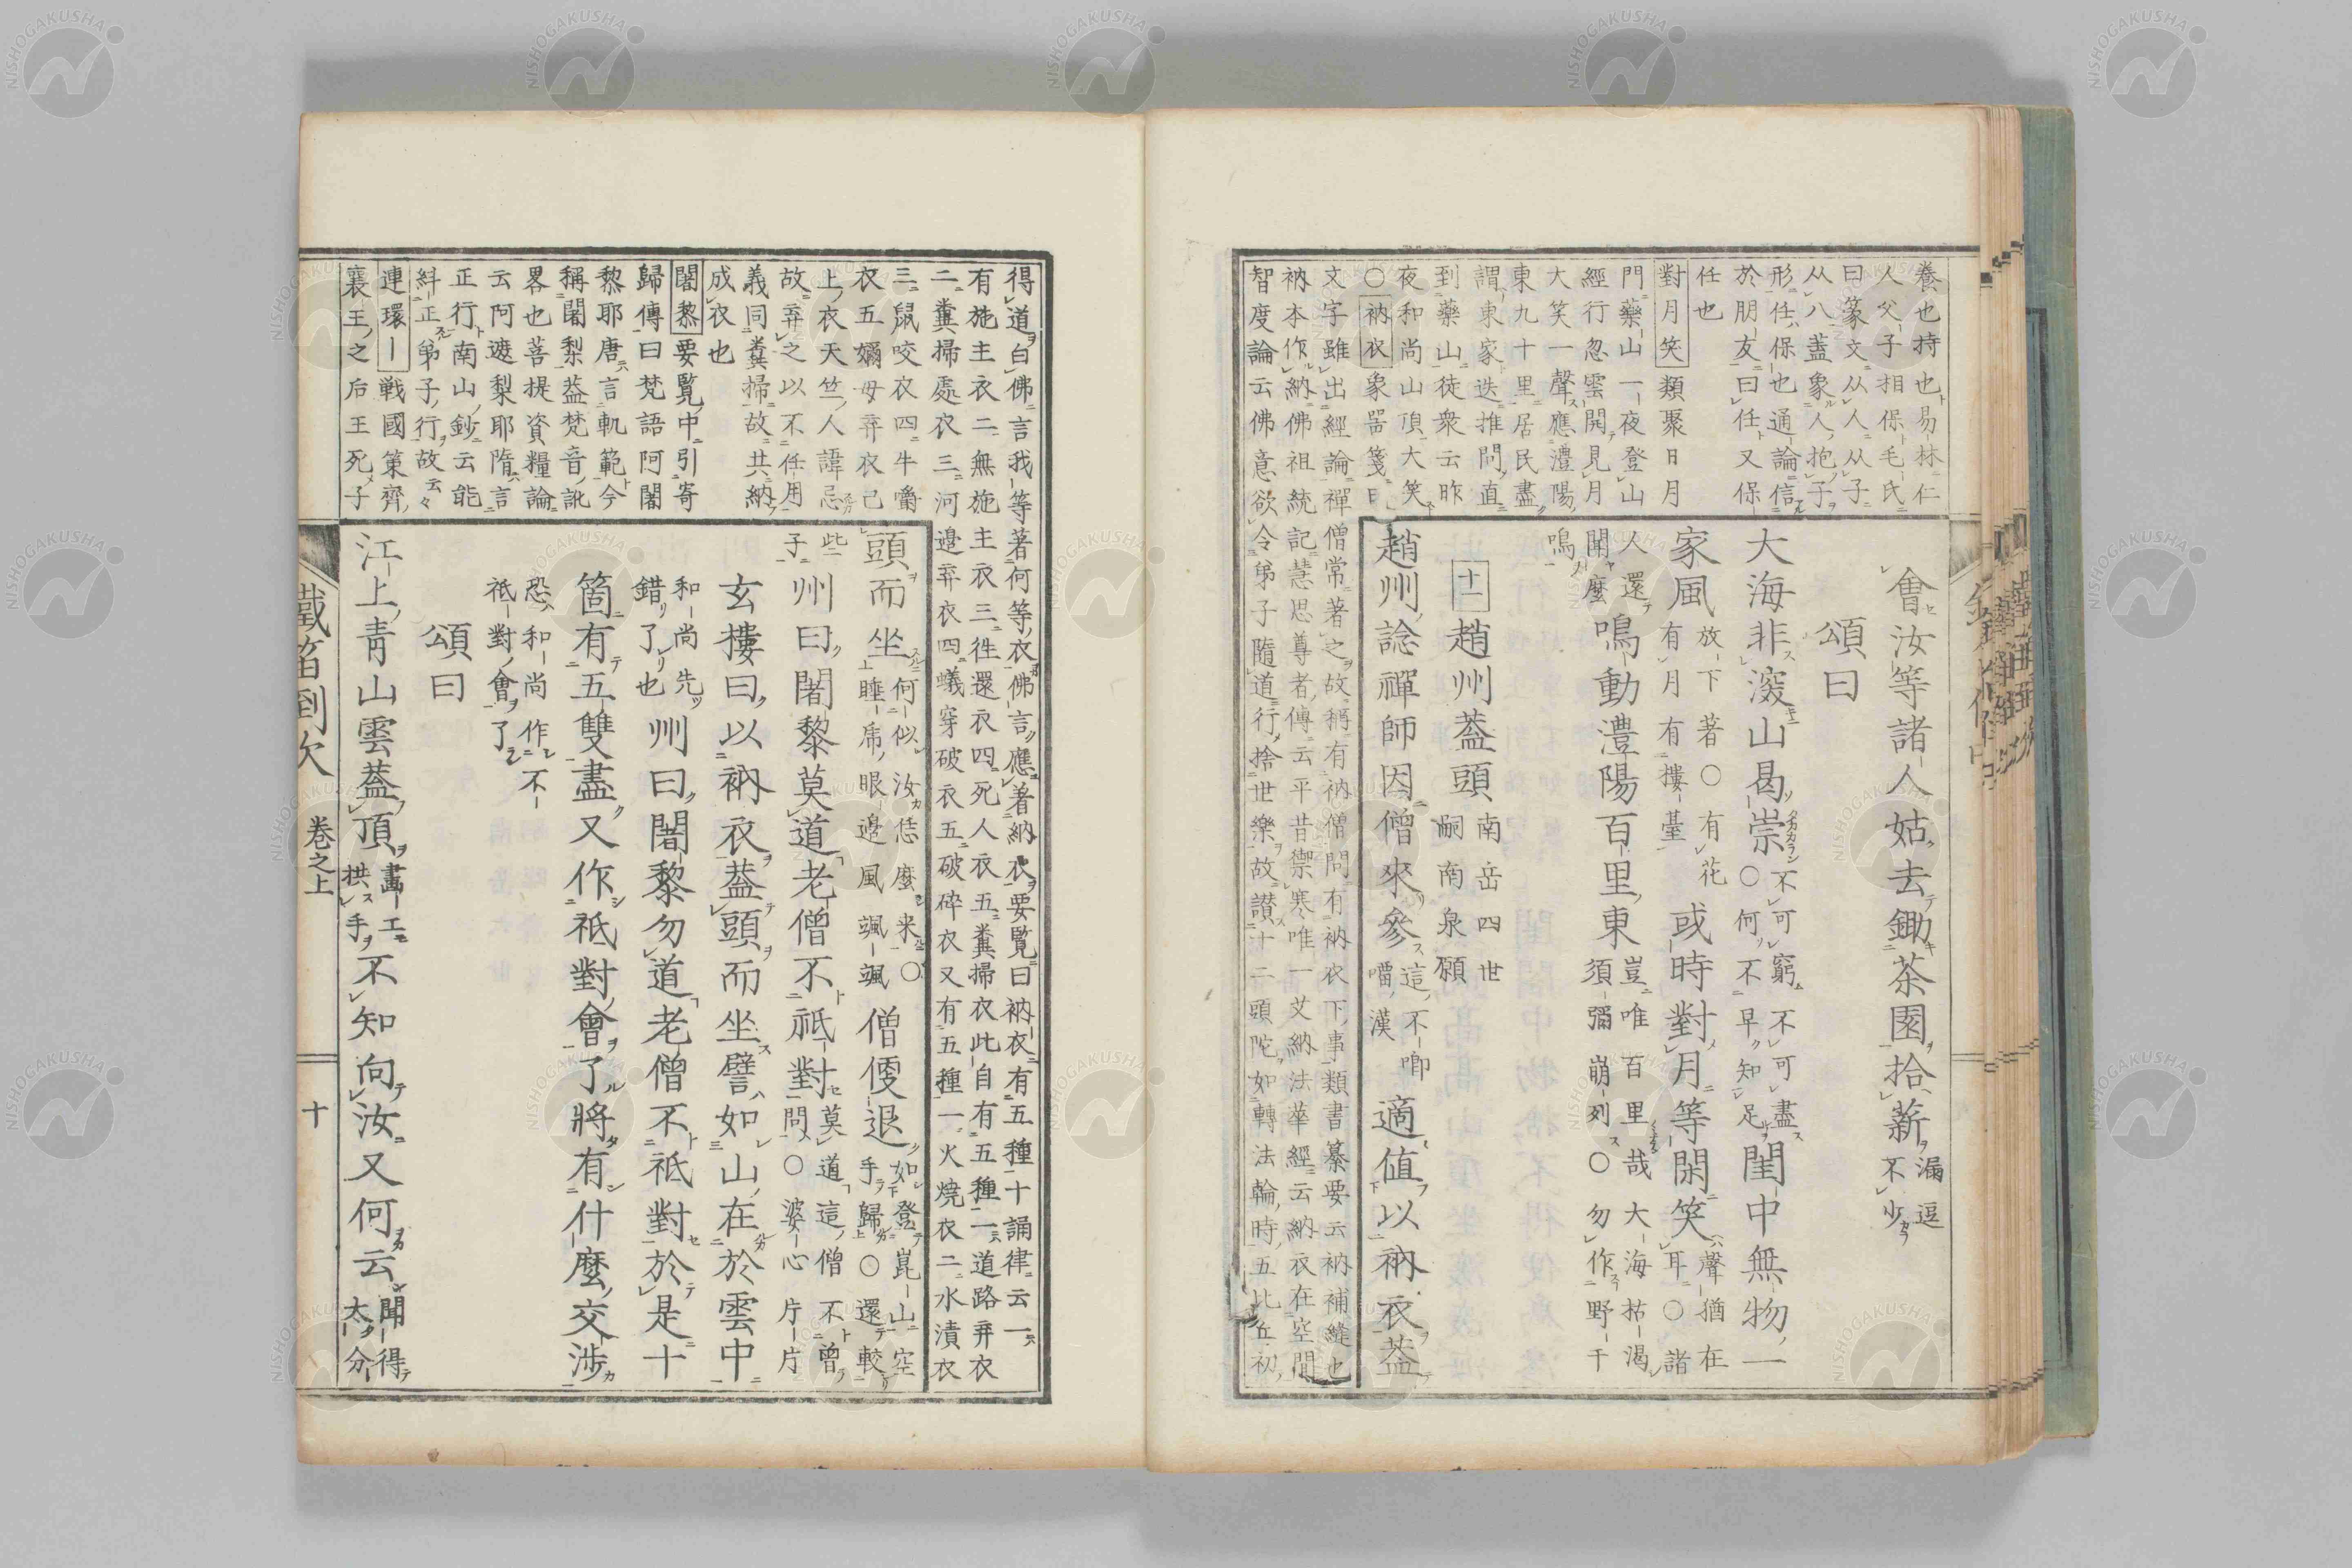 養也持也易林仁
人父子相保毛氏
曰篆文从人从子
从八蓋象人抱子
形任保也通論信
於朋友曰任又保
任也
對月笑類聚日月
門藥山一夜登山
經行忽雲開見月
大笑一聲應澧陽
東九十里居民盡
謂東家迭推問直
到藥山徒衆云昨
夜和尚山頂大笑
○衲衣象噐箋曰
文字雖出經論禪僧常著之故稱有衲僧問有衲衣下事類書纂要云衲補縫也
衲本作納佛祖統記慧思尊者傳云平昔禦寒唯一艾納法華經云納衣在空閒
智度論云佛意欲令弟子隨道行捨世樂故讃十二頭陀如轉法輪時五比丘初
會汝等諸人姑去鋤茶園拾薪漏逗
不少
頌曰
大海非深山曷崇不可窮不可盡
○何不早知足閨中無物一
家風放下著○有花
有月有樓臺或時對月等閑笑聲猶在
耳○諸
人還
聞麼鳴動澧陽百里東豈唯百里哉大海枯渴
須彌崩列○勿作野干
鳴
十一趙州蓋頭南岳四世
嗣南泉願
趙州諗禪師因僧來參這不唧
𠺕漢適値以衲衣蓋
得道白佛言我等著何等衣佛言應著納衣要覧曰衲衣有五種十誦律云一
有施主衣二無施主衣三徃還衣四死人衣五糞掃衣此自有五種一道路弃衣
二糞掃處衣三河邉弃衣四蟻穿破衣五破碎衣又有五種一火燒衣二水漬衣
三鼠咬衣四牛嚼
衣五嬭母弃衣已
上衣天竺人諱忌
故弃之以不任用
義同糞掃故共納
成衣也
闍黎要覧中引寄
歸傳曰梵語阿闍
黎耶唐言軌範今
稱闍梨葢梵音訛
畧也菩提資糧論
云阿遮梨耶隋言
正行南山鈔云能
糾正弟子行故云々
連環戦國策齊
襄王之后王死子
頭而坐何似汝恁麼来○
睡席眼邉風颯颯僧便退如登崑山空
手歸○還較
些
子州曰闍黎莫道老僧不祇對莫道這僧不曾
問○婆心片片
玄樓曰以衲衣蓋頭而坐譬如山在於雲中
和尚先
錯了也州曰闍黎勿道老僧不祇對於是十
箇有五雙盡又作祇對會了將有什麼交渉
恐和尚作不
祇對會了
頌曰
江上青山雲蓋頂畵工
拱手不知向汝又何云聞得
太分
鐵笛倒吹 卷之上 十